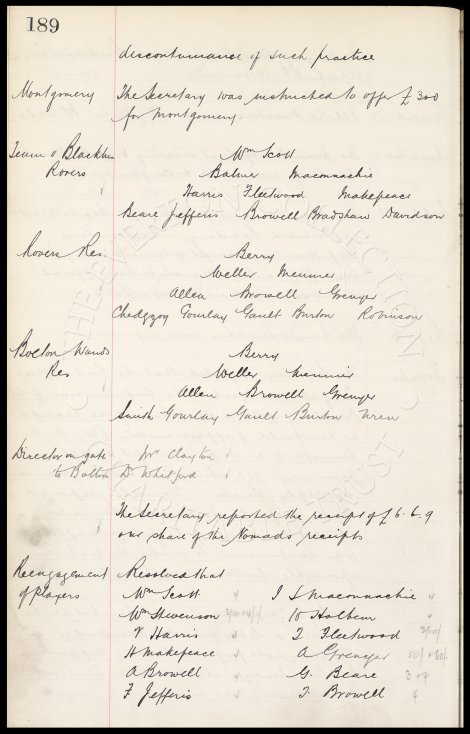 189
discontinuance of such practice
Montgomery The Secretary was instructed to offer £300
for Montgomery.
Team v Blackburn Wm Scott
Rovers Balmer Maconnachie
Harris Fleetwood Makepeace
Beare Jefferis Browell Bradshaw Davidson
Rovers Res. Berry
Weller Meunier
Allen Browell Grenyer
Chedgzoy Gourlay Gault Burton Robinson
Bolton Wands Berry
Res Weller Meunier
Allen Browell Grenyer
Smith Gourlay Gault Burton Uren
Director on gate Mr Clayton
to Bolton Dr Whitford
The Secretary reported the receipt of £6.6.9
our share of the Nomads receipts
Reengagement Resolved that
of players Wm Scott J S Maconnachie
Wm Stevenson W Holbem
V Harris T Fleetwood
H Makepeace A Grenyer
A Browell G. Beare
F Jefferis T. Browell
THE EVERTON COLLECTION
CHARITABLE TRUST